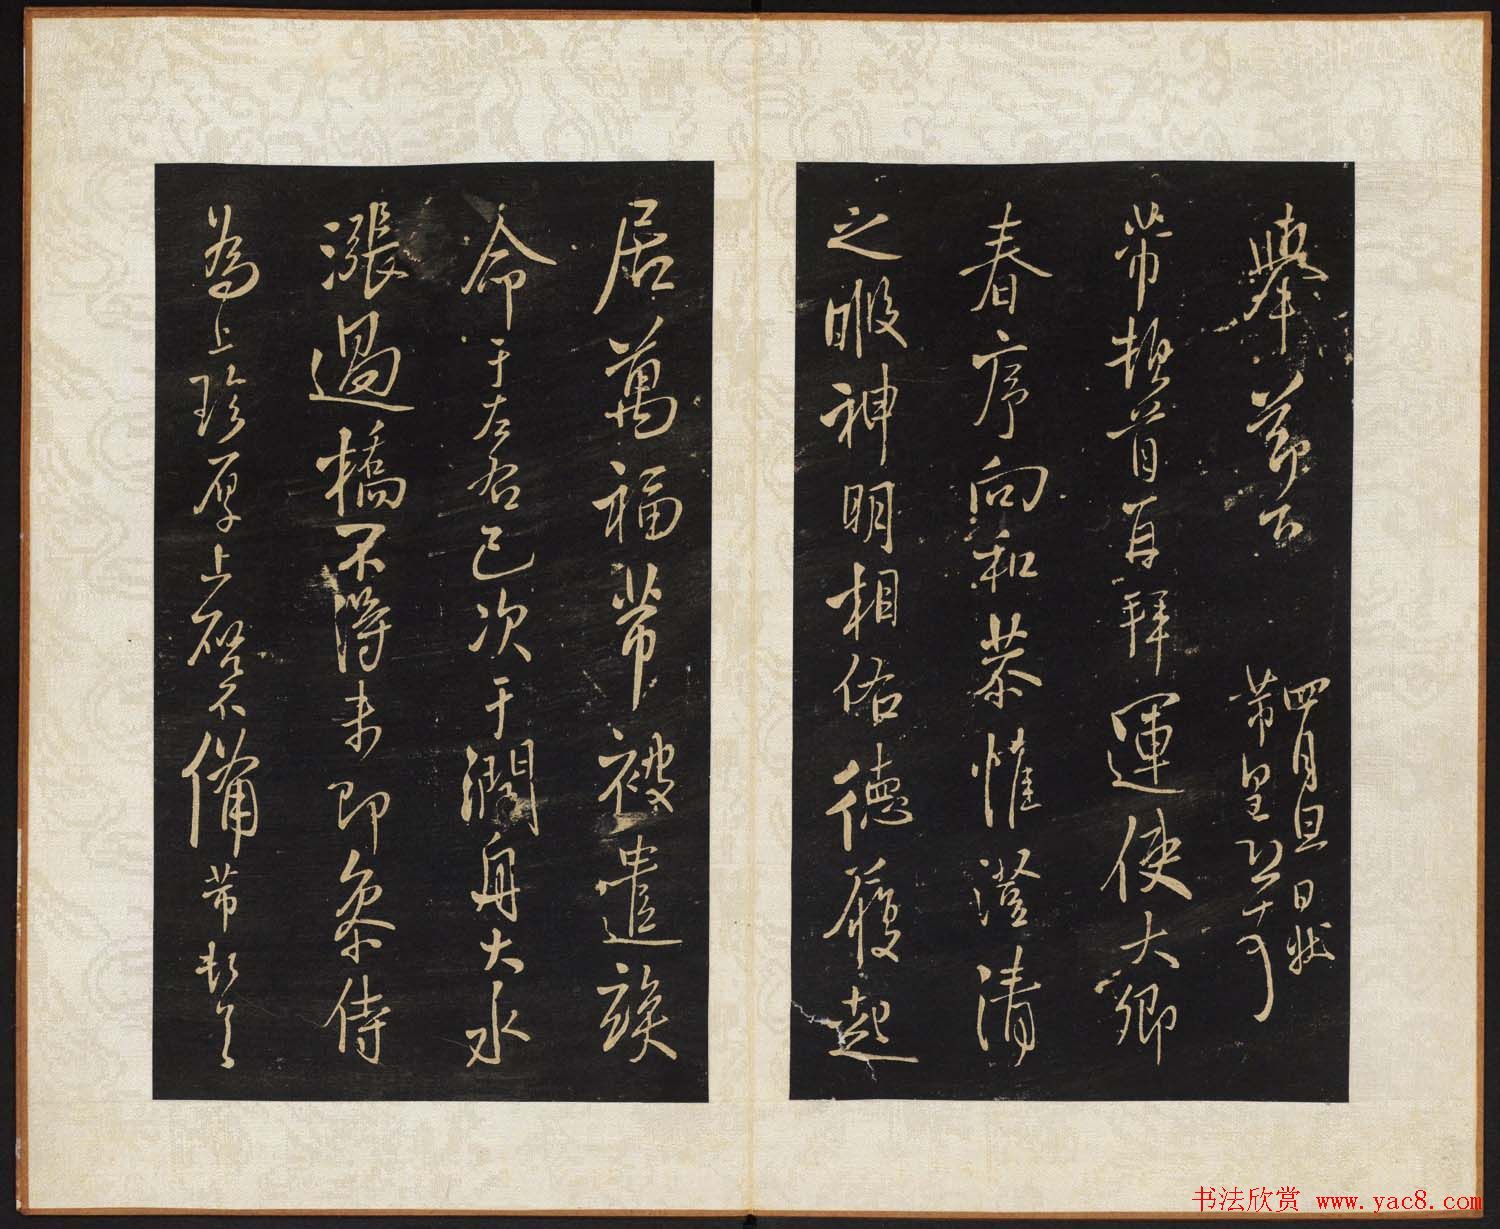 四月旦日狀
芾皇恐
芾頓首再拜運使大卿
春序向和恭惟澄清
之暇神明相佑德履起
居萬福芾被遣竢
命于左右已次于潤舟大水
漲過橋不得未即參侍
為上珍厚上啓不備芾頓首
书法欣赏 www.yac8.com